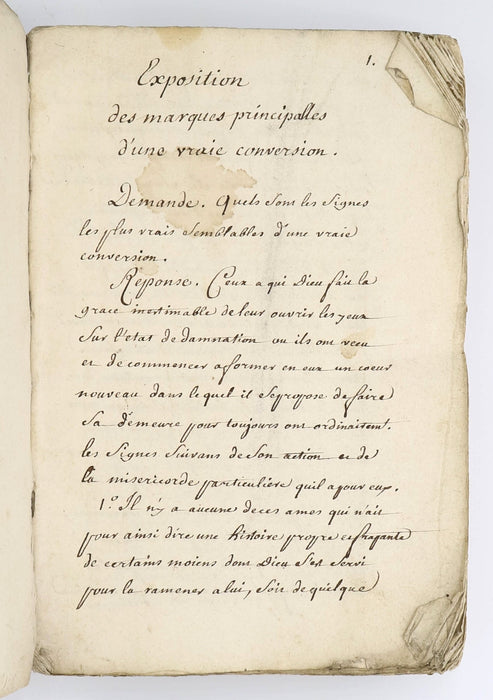 1.
Exposition
des marques principalles
d'une vraie conversion.
Demande. Quels sont les signes
les plus vrais semblables d'une vraie
conversion.
Reponse. Ceux a qui Dieu fait la
grace inestimable de leur ouvrir les yeux
sur l'etat de damnation ou ils ont vecu
et de commencer a former en eux un coeur
nouveau dans le quel il se propose de faire
sa demeure pour toujours ont ordinairemt.
les signes suivans de son action et de
la misericorde particuliere quil a pour eux.
1.o Il n'y a aucune de ces ames qui n'ait
pour ainsi dire une histoire propre et
de certains moiens dont Dieu s'est servi
pour la ramener a lui, soit de quelque